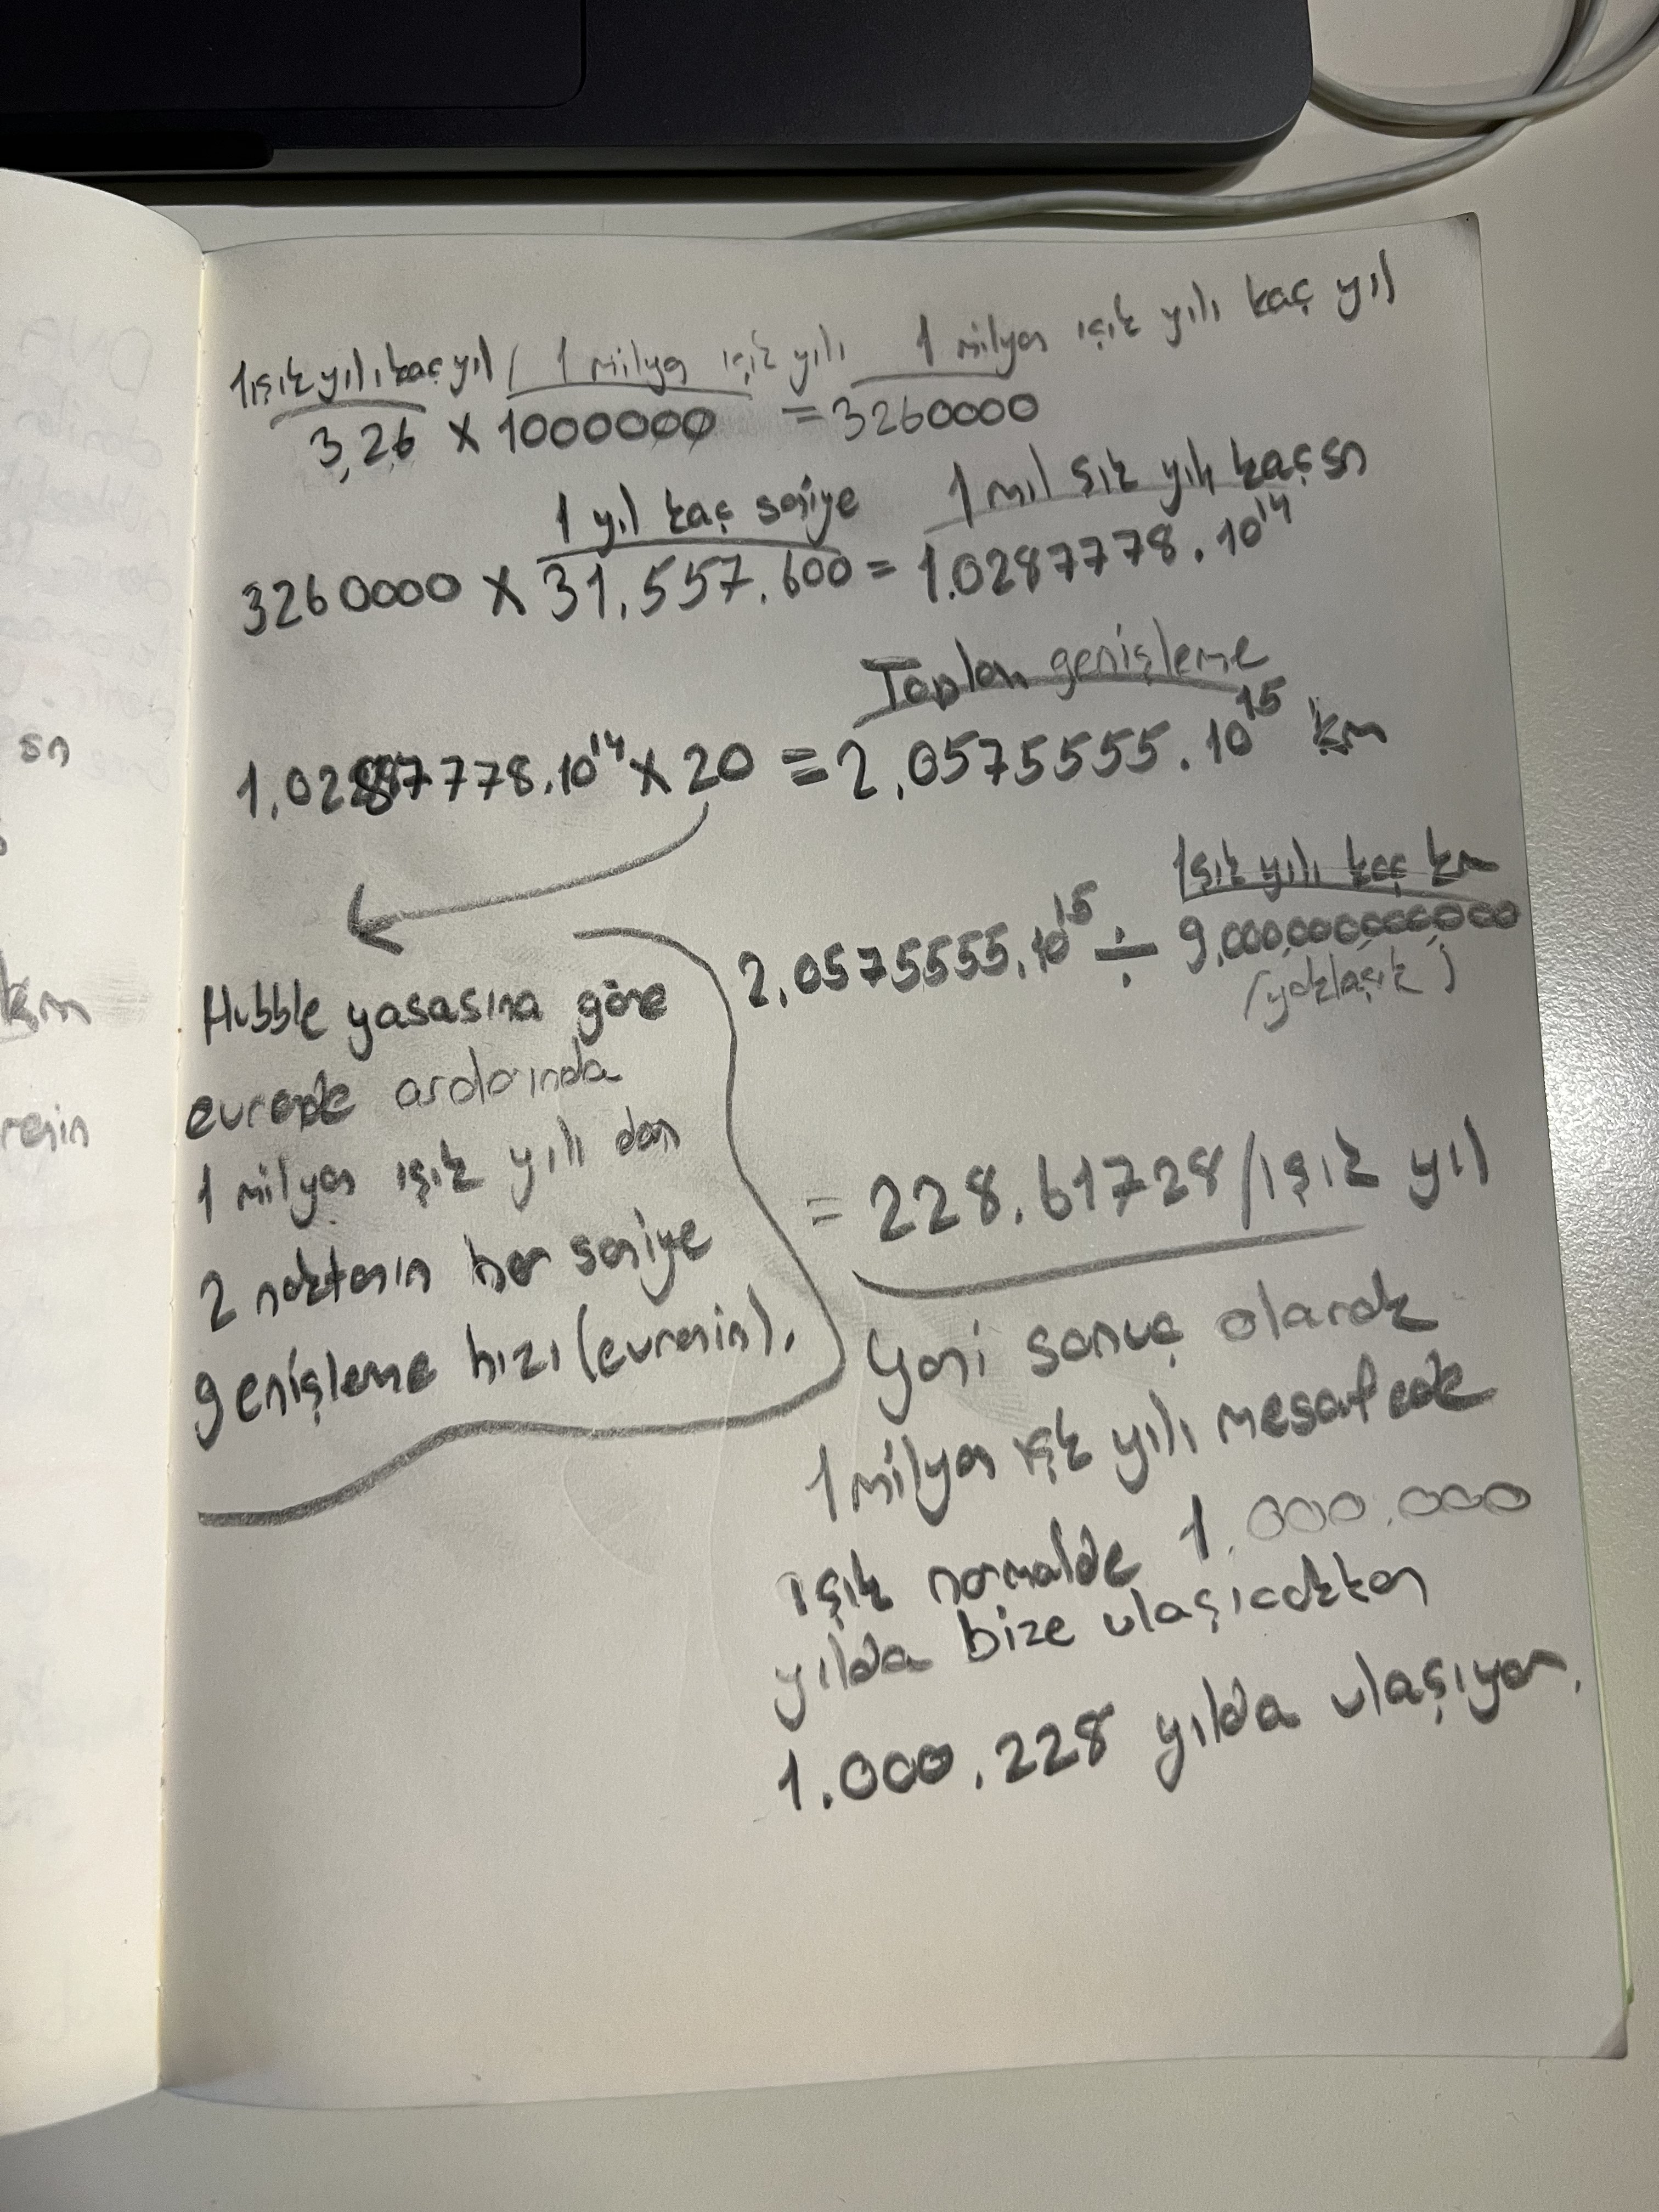 1ışık yılı kaç yıl / 1 milyon ışık yılı 1 milyon ışık yılı kaç yıl
3,26 x 1000000 = 3260000
1 yıl kaç saniye 1 mil şık yılı kaç sn
3260000 x 31.557.600 = 1.0287778.10¹⁴
Toplam genişleme
1,02887778.10¹⁴ x 20 = 2,0575555.10¹⁵ km
Işık yılı kaç km
2,0575555.10¹⁵ ÷ 9,000,000,000,000
(yaklaşık)
Hubble yasasına göre
evrende aralarında
1 milyon ışık yılı olan
2 noktanın her saniye
genişleme hızı (evrenin).
= 228.61728/ışık yıl
yani sonuç olarak
1 milyon ışık yılı mesafedek
ışık normalde 1.000.000
yılda bize ulaşıcakken
1.000.228 yılda ulaşıyor.
sn
km
renin